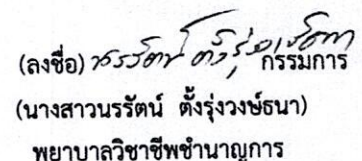 (ลงชื่อ) นรรัตน์ ตั้งรุ่งวงษ์ธนา กรรมการ
(นางสาวนรรัตน์ ตั้งรุ่งวงษ์ธนา)
พยาบาลวิชาชีพชำนาญการ